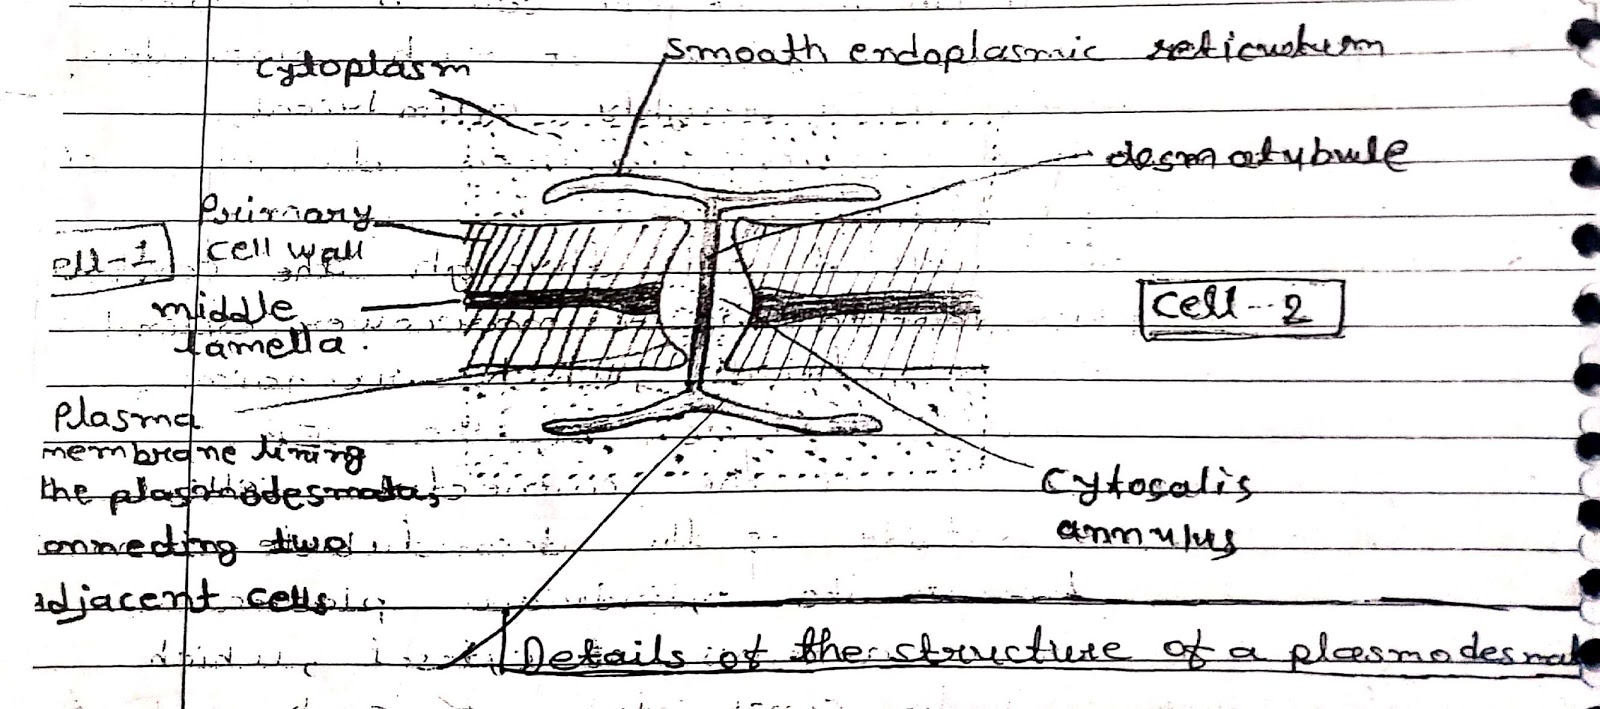 Smooth endoplasmic reticulum
cytoplasm
desmotubule
Primary
cell wall
ell-1
middle
lamella.
cell-2
Plasma
membrane lining
the plasmodesmata,
onnecting two
adjacent cells
Cytosolis
annulus
Details of the structure of a plasmodesmat